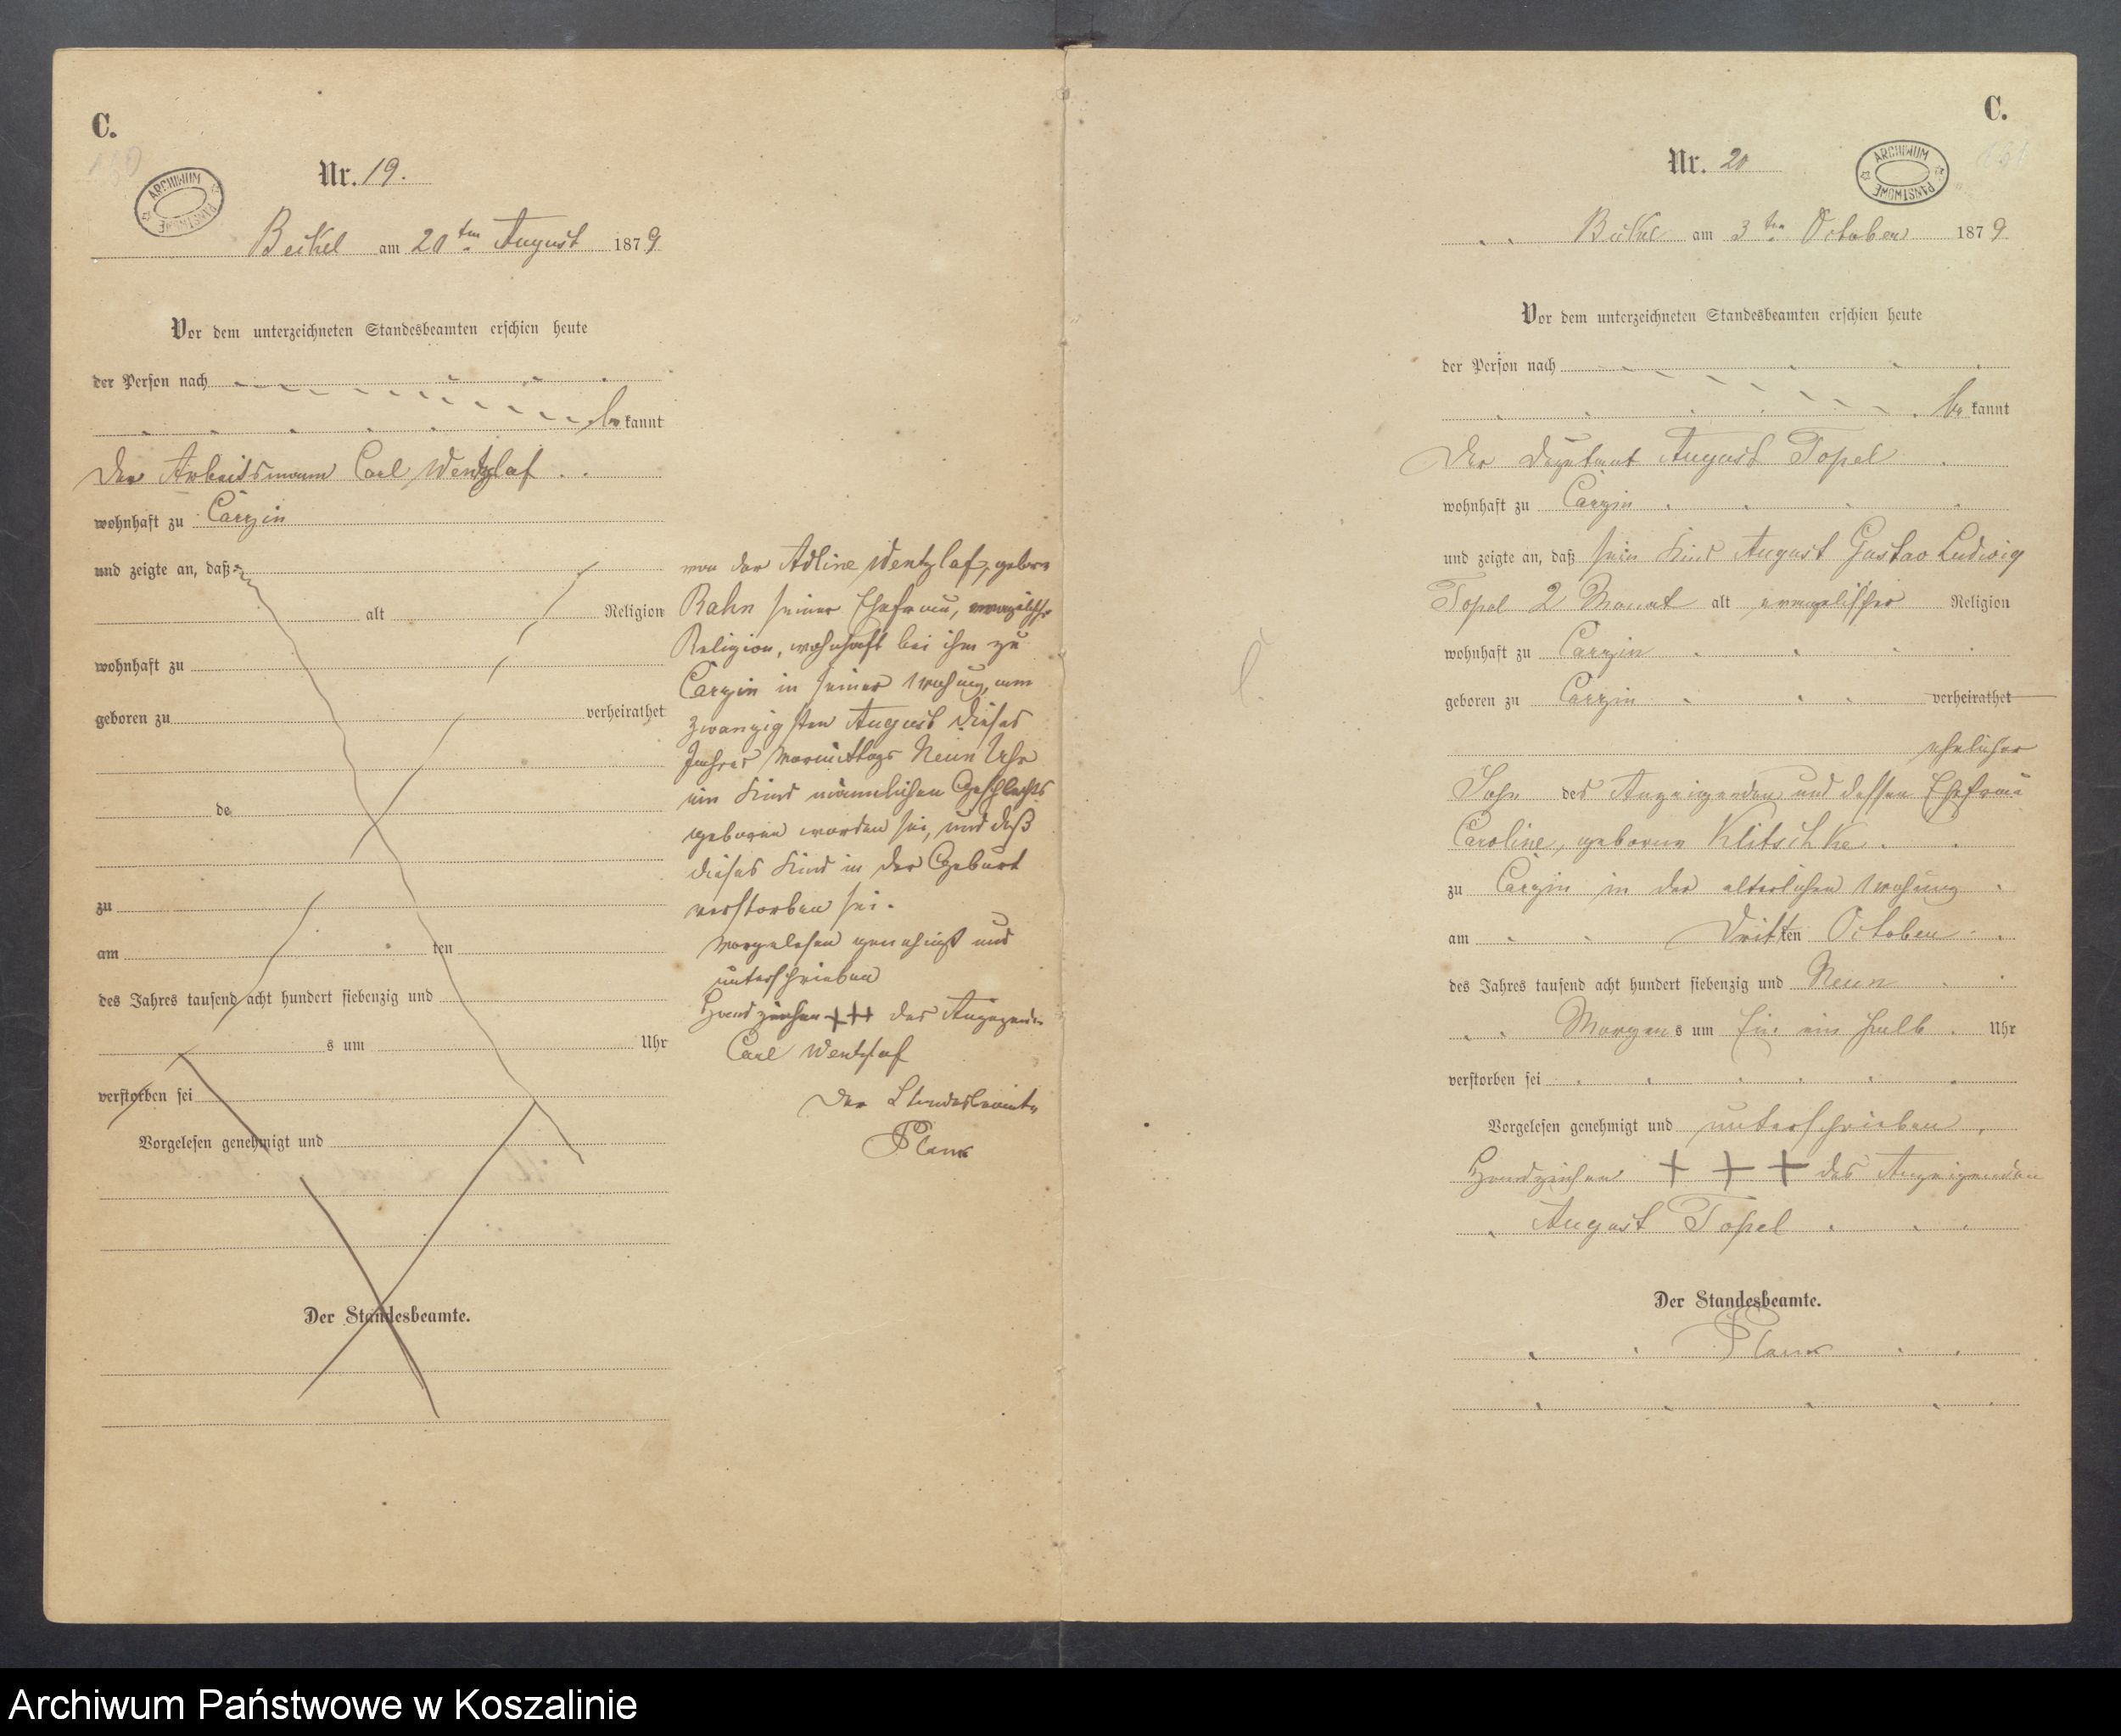 C.
ARCHIWUM PAŃSTWOWE
Nr. 19.
Beikel am 20ten August 1879
Vor dem unterzeichneten Standesbeamten erschien heute
der Person nach
bekannt
Der Arbeitsmann Carl Wentzlaf
wohnhaft zu Carzin
und zeigte an, daß
alt Religion
wohnhaft zu
geboren zu verheirathet
de
zu
am ten
des Jahres tausend acht hundert siebenzig und
s um Uhr
verstorben sei
Vorgelesen genehmigt und
Der Standesbeamte.
von der Adline Wentzlaf, geborn
Rahn seiner Ehefrau, evangelischer
Religion, wohnhaft bei ihm zu
Carzin in seiner Wohung, am
zwanzigsten August dieses
Jahres Vormittags Neun Uhr
ein Kind männlichen Geschlechts
geboren worden sei, und daß
dieses Kind in der Geburt
verstorben sei.
Vorgelesen genehmigt und
unterschrieben
Handzeichen +++ des
Carl Wentzlaf
Der Standesbeamte
C.
Nr. 20
ARCHIWUM PAŃSTWOWE
Beikel am 3ten October 1879
Vor dem unterzeichneten Standesbeamten erschien heute
der Person nach
bekannt
Der August Topel
wohnhaft zu Carzin
und zeigte an, daß sein Kind August Gustav Ludwig
Topel 2 Monat alt evangelischer Religion
wohnhaft zu Carzin
geboren zu Carzin verheirathet
ehelicher
Sohn des Anzeigenden und dessen Ehefrau
Caroline, geborne Klitschke
zu Carzin in der elterlichen Wohung
am Dritten October
des Jahres tausend acht hundert siebenzig und Neun
Morgens um Ein ein halb Uhr
verstorben sei
Vorgelesen genehmigt und unterschrieben
Handzeichen + + + des Anzeigenden
August Topel
Der Standesbeamte.
Archiwum Państwowe w Koszalinie